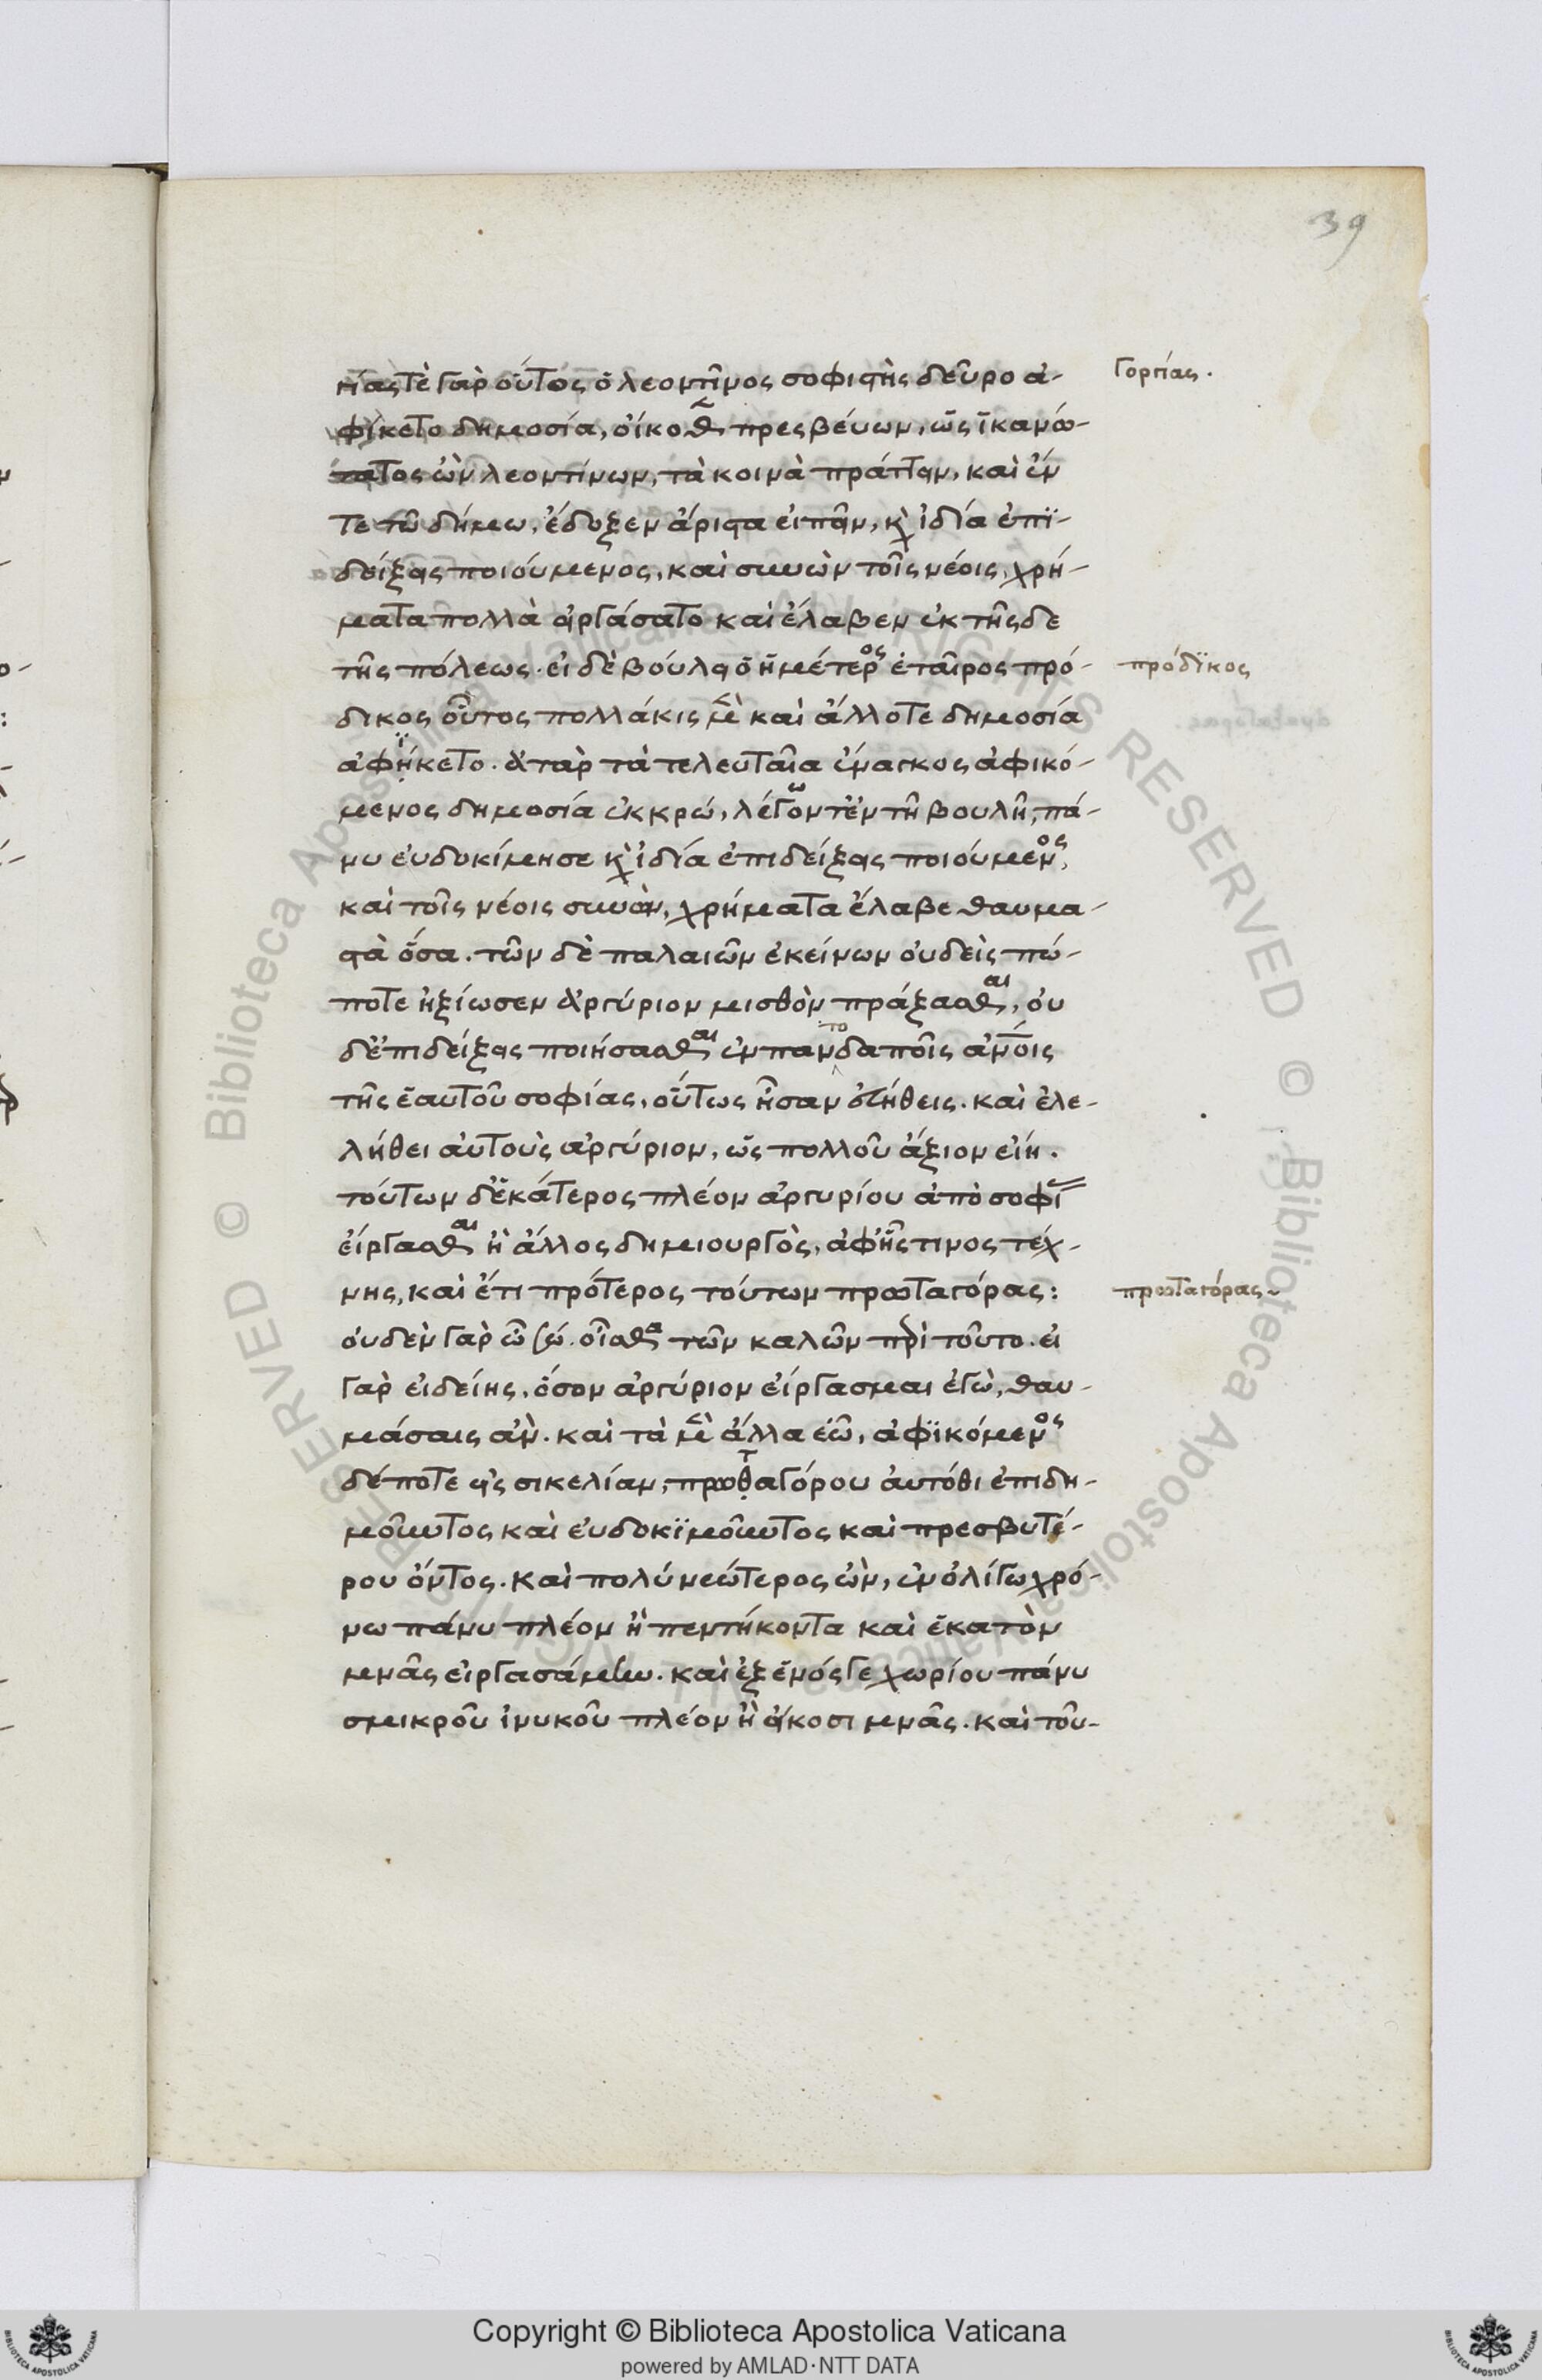 39
γίας τὲ γὰρ οὗτος ὁ λεοντῖνος σοφιστὴς δεῦρο ἀ-
Γοργίας.
φίκετο δημοσία, οἴκοθεν πρεσβεύων, ὡς ἱκανώ-
τατος ὢν λεοντίνων, τὰ κοινὰ πράττειν, καὶ ἔν
τε τῶ δήμω, ἔδοξεν ἄριστα εἰπεῖν, κ̀ ἰδία ἐπι-
δείξεις ποιούμενος, καὶ συνὼν τοῖς νέοις, χρή-
ματα πολλὰ εἰργάσατο καὶ ἔλαβεν ἐκ τῆς δε
τῆς πόλεως. εἰ δὲ βούλει ὁ ἡμέτερος ἑταῖρος πρό-
πρόδϊκος
δικος οὗτος πολλάκις μὲν καὶ ἄλλοτε δημοσία
ἀφήκετο. ἀτὰρ τὰ τελευταῖα ἔναγκος ἀφικό-
μενος δημοσία ἐκ κρώ, λέγον τ' ἐν τῆ βουλῆ, πά-
νυ εὐδοκίμησε κ̀ ἰδία ἐπιδείξεις ποιούμενος,
καὶ τοῖς νέοις συνὼν, χρήματα ἔλαβε θαυμα-
στὰ ὅσα. τῶν δὲ παλαιῶν ἐκείνων οὐδεὶς πώ-
ποτε ἠξίωσεν ἀργύριον μισθὸν πράξασθαι, οὐ
δ' ἐπιδείξεις ποιήσασθαι ἐν παντοδαποῖς ἀνοις
τῆς ἑαυτοῦ σοφίας, οὕτως ἦσαν εὐήθεις. καὶ ἐλε-
λήθει αὐτοὺς ἀργύριον, ὡς πολλοῦ ἄξιον εἴη.
τούτων δ' ἑκάτερος πλέον ἀργυρίου ἀπὸ σοφί
εἴργασθαι ἢ ἄλλος δημιουργὸς, ἀφ' ἧς τινος τέχ-
νης, καὶ ἔτι πρότερος τούτων πρωταγόρας:
πρωταγόρας
οὐδὲν γὰρ ὦ σώ. οἶσθα τῶν καλῶν περὶ τοῦτο. εἰ
γὰρ εἰδείης, ὅσον ἀργύριον εἴργασμαι ἐγὼ, θαυ-
μάσαις ἂν. καὶ τὰ μὲν ἄλλα ἐῶ, ἀφϊκόμενος
δέ ποτε εἰς σικελίαν, πρωθαγόρου αὐτόθι ἐπιδη-
μοῦντος καὶ εὐδοκϊμοῦντος καὶ πρεσβυτέ-
ρου ὄντος. καὶ πολύ νεώτερος ὢν, ἐν ὀλίγω χρό-
νω πάνυ πλέον ἢ πεντήκοντα καὶ ἑκατὸν
μνᾶς εἰργασάμην. καὶ ἐξ ἑνός γε χωρίου πάνυ
σμικροῦ ἰνυκοῦ πλέον ἢ εἴκοσι μνᾶς. καὶ τοῦ-
Copyright © Biblioteca Apostolica Vaticana
powered by AMLAD·NTT DATA
© Biblioteca Apostolica Vaticana ALL RIGHTS RESERVED